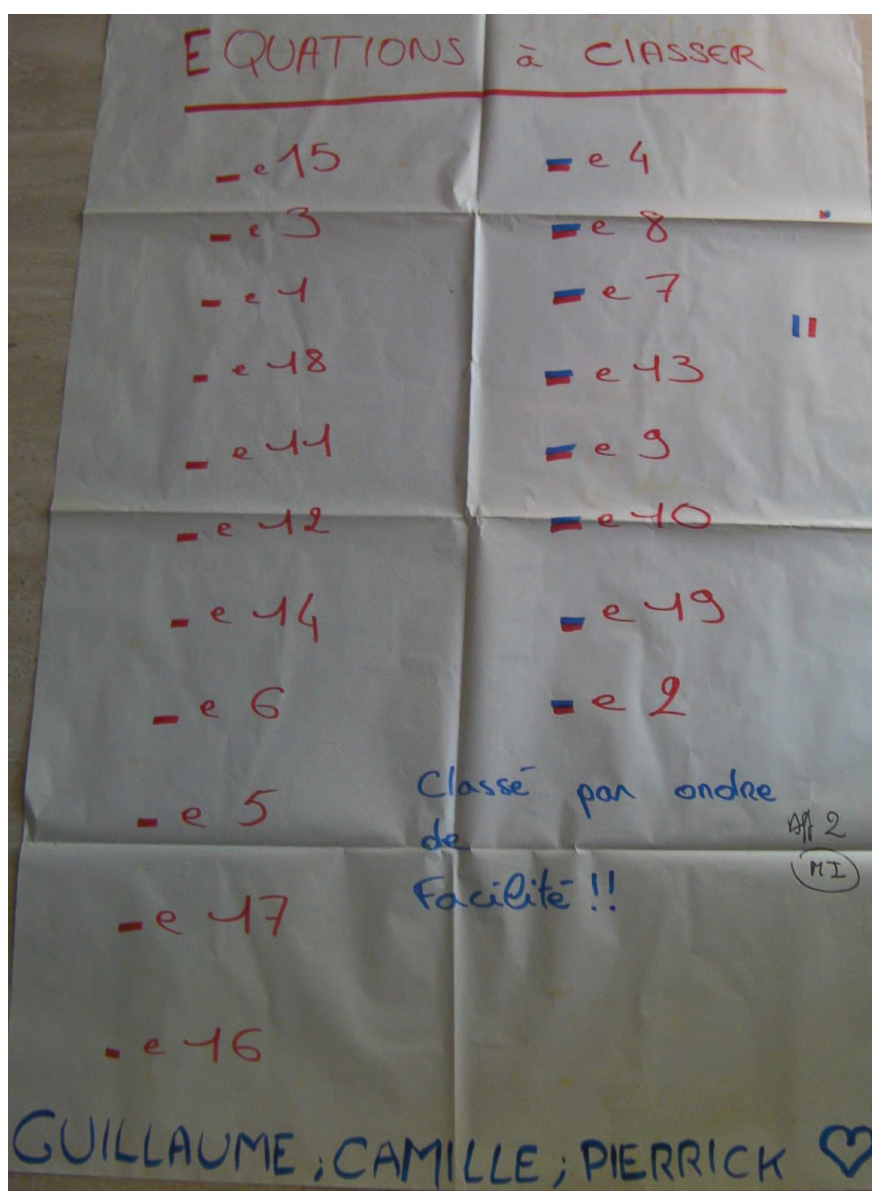 EQUATIONS à CLASSER
- e 15
- e 3
- e 1
- e 18
- e 11
- e 12
- e 14
- e 6
- e 5
- e 17
- e 16
= e 4
= e 8
= e 7
= e 13
= e 9
= e 10
= e 19
= e 2
Classé par ordre
de
Facilité !!
Aff 2
MI
GUILLAUME ; CAMILLE ; PIERRICK ♡